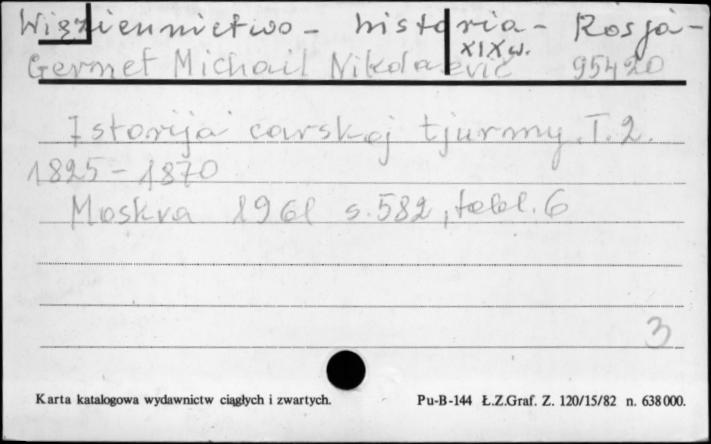 Więziennictwo - historia - Rosja -
XIX w.
Gernet Michail Nikolaevič 95420
Istorija carskoj tjurmy. T. 2.
1825 - 1870
Moskva 1961 s. 582, tabl. 6
3
Karta katalogowa wydawnictw ciągłych i zwartych. Pu-B-144 Ł.Z.Graf. Z. 120/15/82 n. 638000.